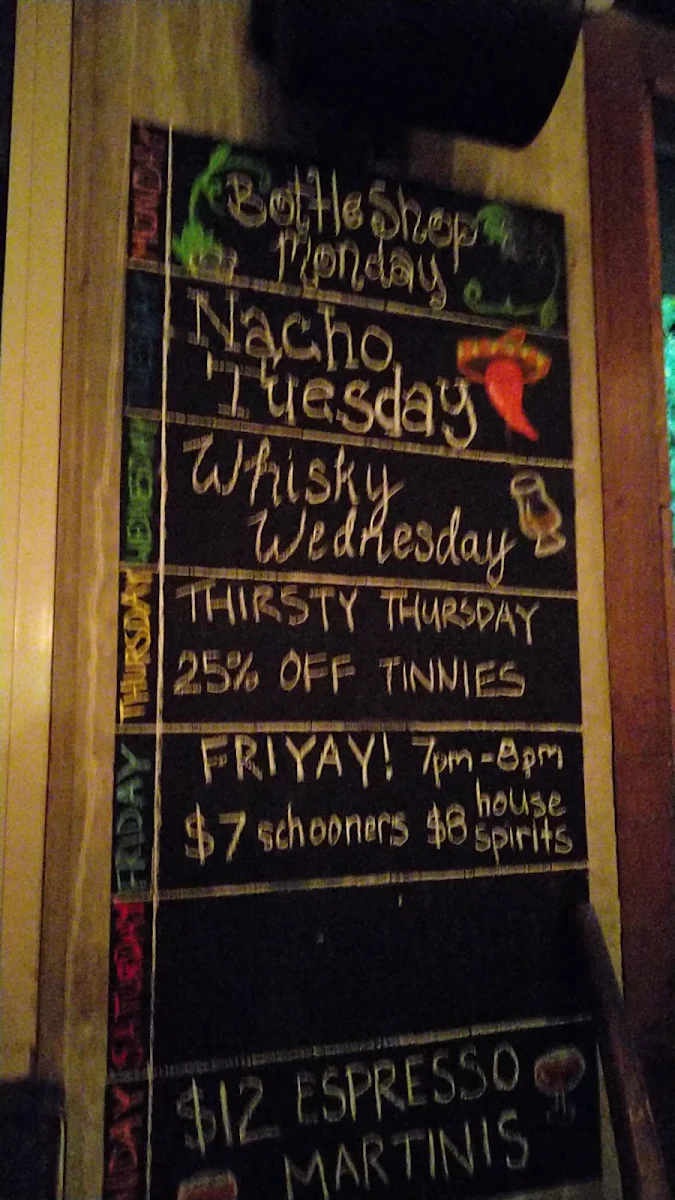 MONDAY
Bottle Shop
Monday
Nacho
Tuesday
Whisky
Wednesday
THURSDAY
THIRSTY THURSDAY
25% OFF TINNIES
FRIDAY
FRIYAY! 7pm-8pm
$7 schooners $8 house spirits
SATURDAY
$12 ESPRESSO
MARTINIS